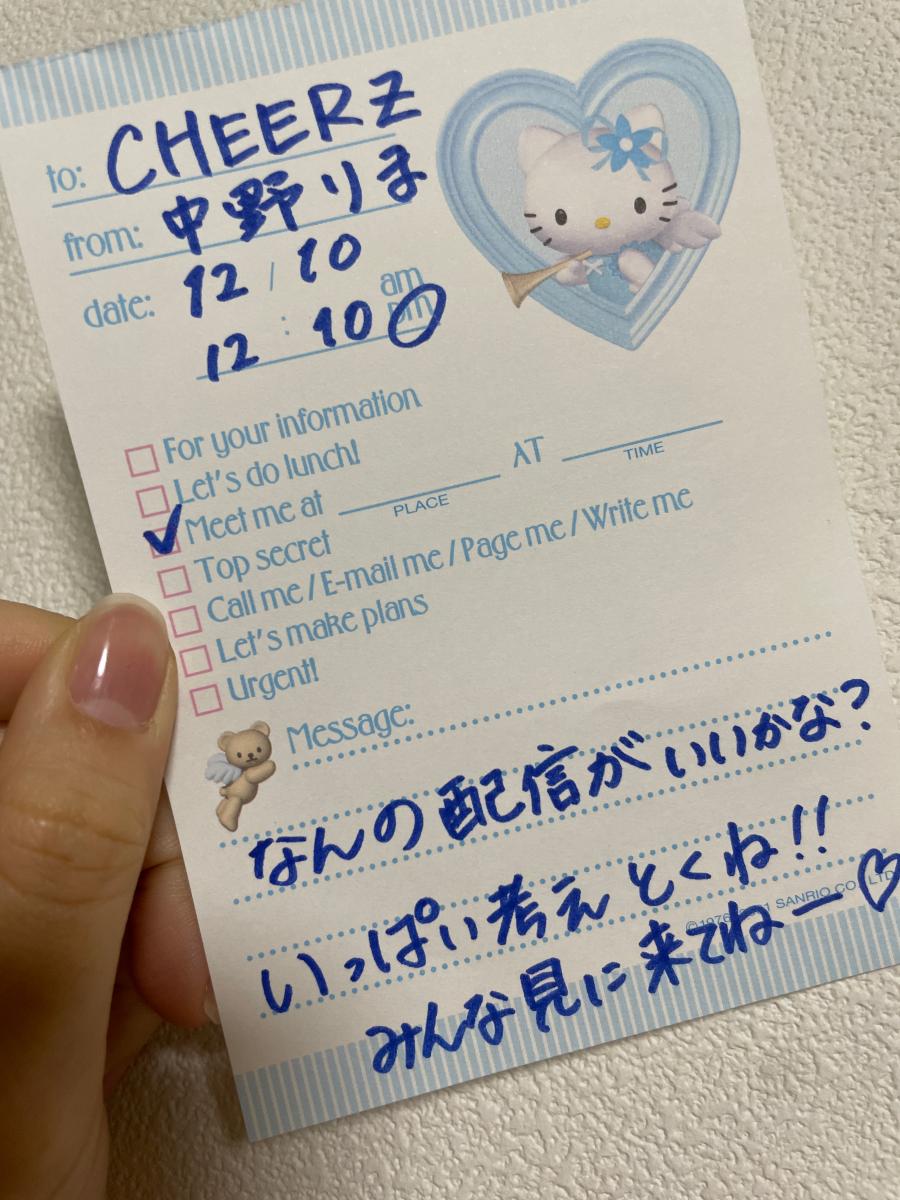 to: CHEERZ
from: 中野りま
date: 12 / 10
am
12 : 10 pm
For your information
Let's do lunch!
Meet me at AT
PLACE TIME
Top secret
Call me / E-mail me / Page me / Write me
Let's make plans
Urgent!
Message:
なんの配信がいいかな?
いっぱい考えとくね!!
©1976, SANRIO CO., LTD.
みんな見に来てねー♡